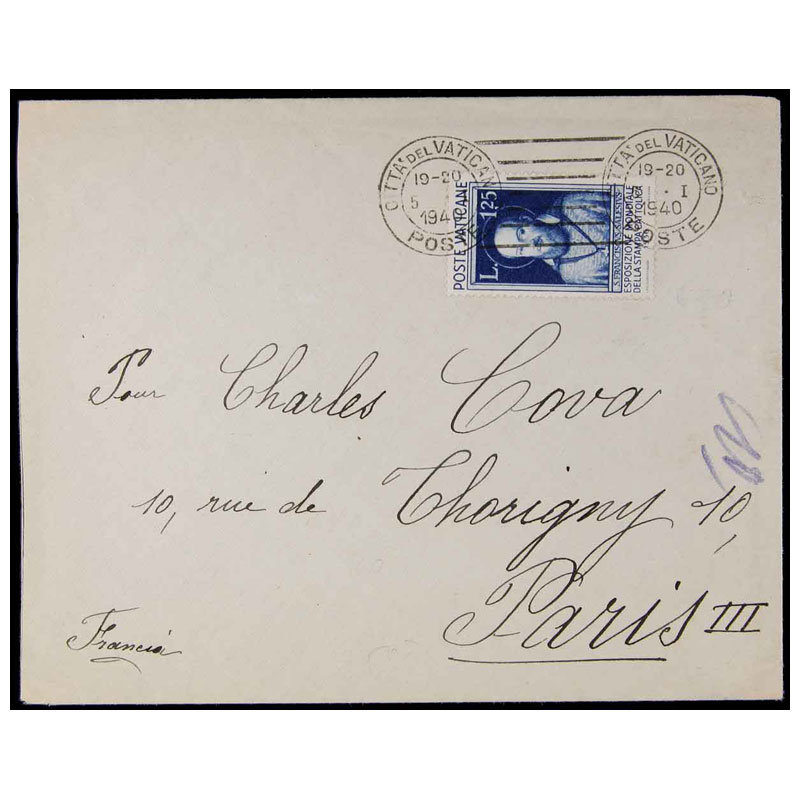 CITTA' DEL VATICANO
19-20
5
1940
POSTE
CITTA' DEL VATICANO
19-20
I
1940
POSTE
POSTE VATICANE
L. 1,25
S. FRANCISCUS SALESIUS
ESPOSIZIONE MONDIALE
DELLA STAMPA CATTOLICA
Pour Charles Cova
10, rue de Thorigny 10,
Paris III
Francia